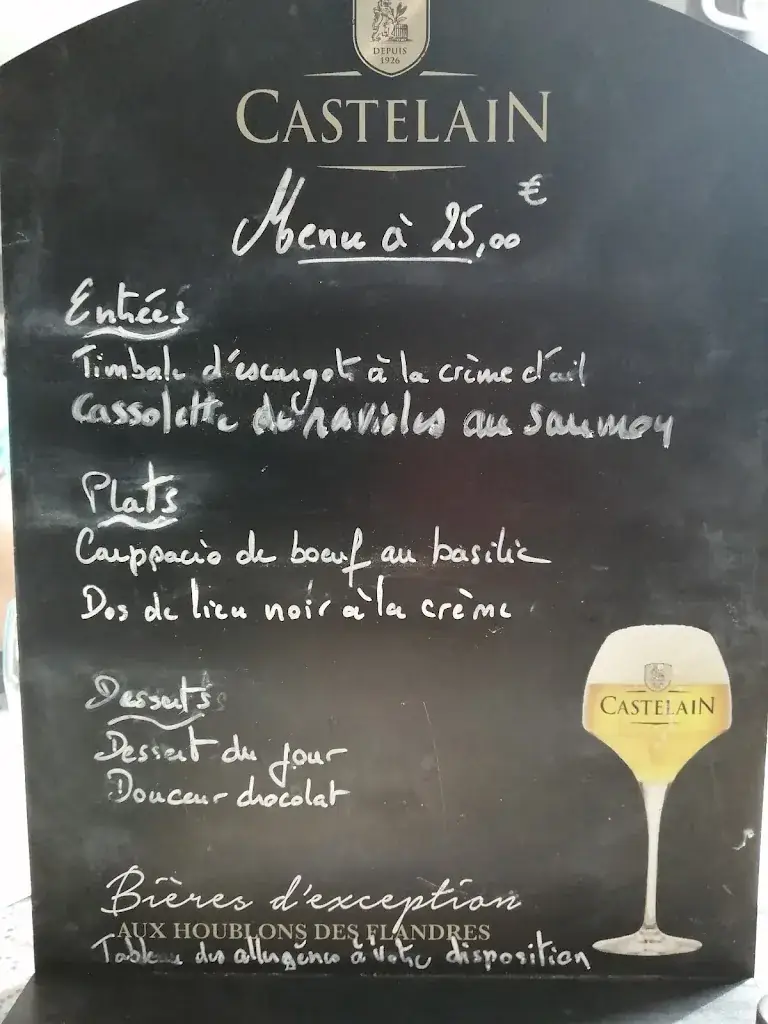 DEPUIS
1926
CASTELAIN
Menu à 25,00 €
Entrées
Timbale d'escargots à la crème d'ail
Cassolette de ravioles au saumon
Plats
Carppacio de boeuf au basilic
Dos de lieu noir à la crème
Desserts
Dessert du jour
Douceur chocolat
CASTELAIN
Bières d'exception
AUX HOUBLONS DES FLANDRES
Tableau des allergènes à votre disposition